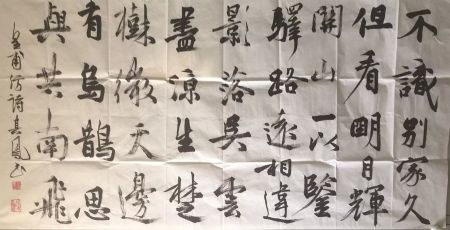 不識別家久
但看明月輝
關山一以鑒
驛路遠相違
影落吳雲
盡涼生楚
樹微天邊
有烏鵲思
與共南飛
皇甫汸詩